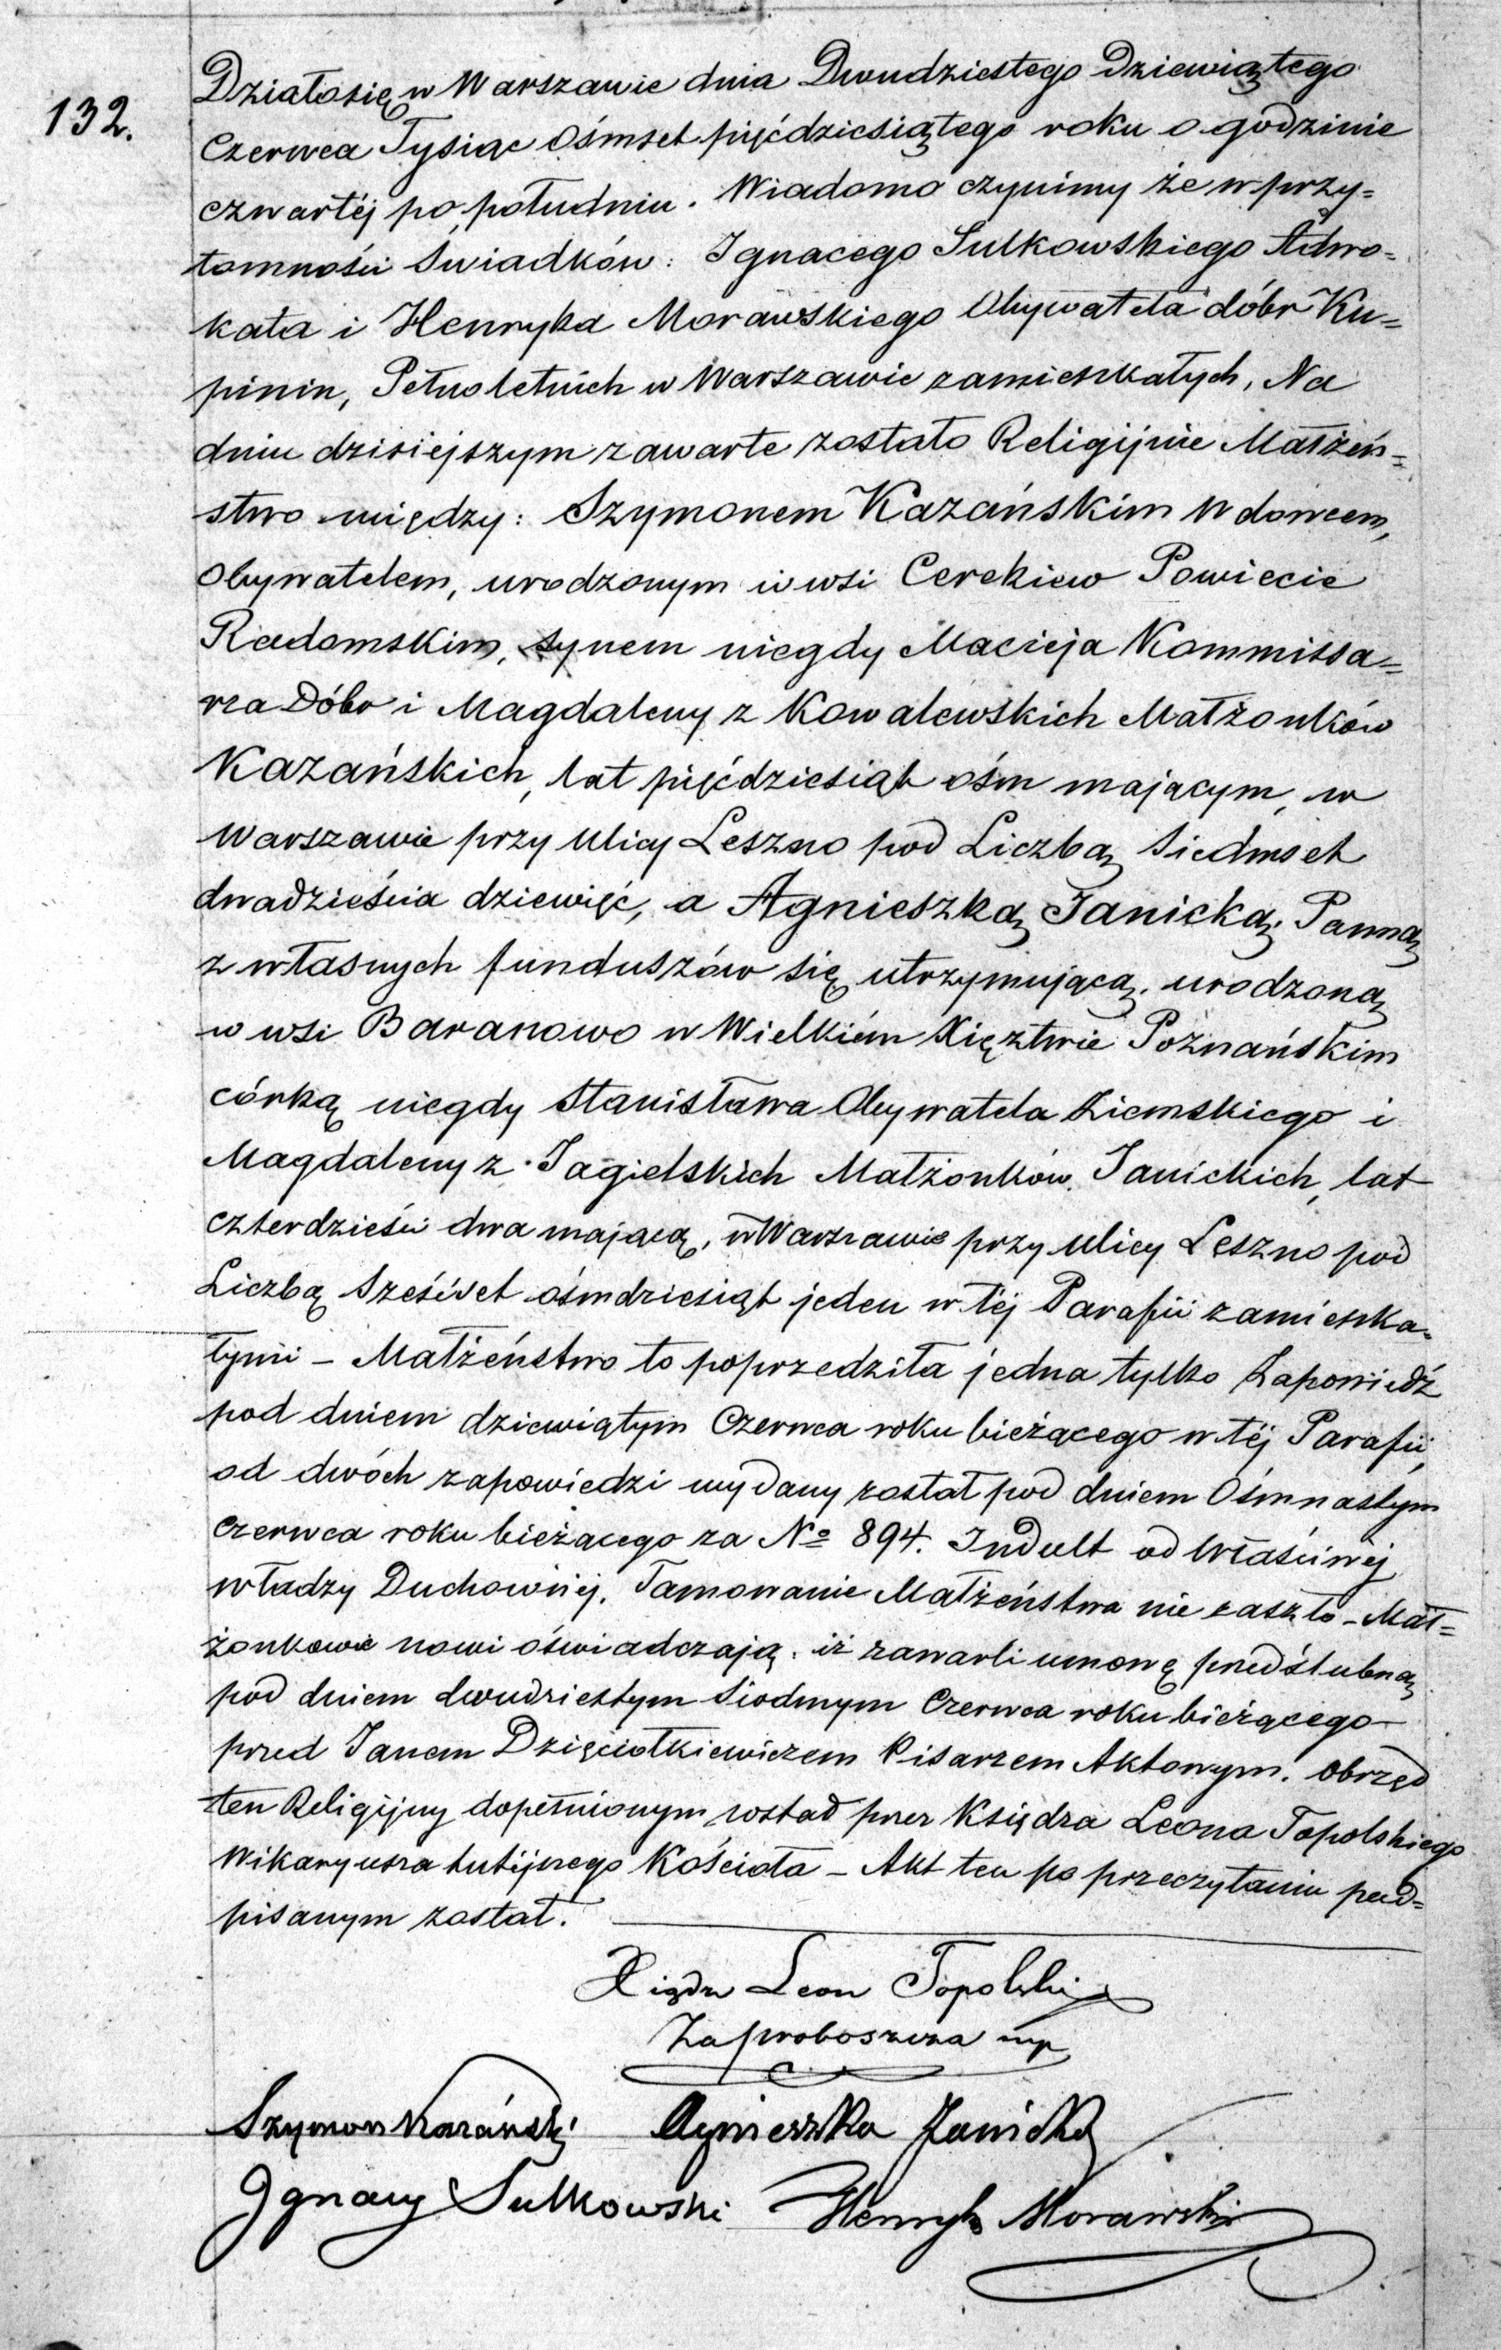 132.
Działo się w Warszawie dnia Dwudziestego Dziewiątego
Czerwca Tysiąc Ośmset pięćdziesiątego roku o godzinie
czwartéj po południu. Wiadomo czynimy że w przy=
tomności Swiadków: Ignacego Sulkowskiego Adwo=
kata i Henryka Morawskiego Obywatela dóbr Ku=
pinin, Pełnoletnich w Warszawie zamieszkałych, Na
dniu dzisiejszym zawarte zostało Religijnie Małżeń=
stwo między: Szymonem Kazańskim Wdowcem,
Obywatelem, urodzonym w wsi Cerekiew Powiecie
Radomskim, synem niegdy Macieja Kommissa=
rza Dóbr i Magdaleny z Kowalewskich Małżonków
Kazańskich, lat pięćdziesiąt ośm mającym, w
Warszawie przy ulicy Leszno pod Liczbą Siedmset
dwadzieścia dziewięć, a Agnieszką Janicką, Panną
z własnych funduszów się utrzymującą, urodzoną
w wsi Baranowo w Wielkiém Xięztwie Poznańskim
córką niegdy Stanisława Obywatela Ziemskiego i
Magdaleny z Jagielskich Małżonków Janickich, lat
czterdzieści dwa mającą, w Warszawie przy ulicy Leszno pod
Liczbą Sześćset ośmdziesiąt jeden w téj Parafii zamieszka=
łymi – Małżeństwo to poprzedziła jedna tylko Zapowiedź
pod dniem dziewiątym Czerwca roku bieżącego w téj Parafii,
od dwóch zapowiedzi wydany został pod dniem Ośmnastym
Czerwca roku bieżącego za No 894. Indult od Właściwéj
władzy Duchownéj. Tamowanie Małżeństwa nie zaszło – Mał=
żonkowie nowi oświadczają, iż zawarli umowę przedślubną
pod dniem dwudziestym Siodmym Czerwca roku bieżącego
przed Janem Dzięciotkiewiczem Pisarzem Aktowym. Obrzęd
ten Religijny dopełnionym został przez Księdza Leona Topolskiego
Wikaryusza tutéjszego Kościoła – Akt ten po przeczytaniu pod=
pisanym został.
Xiądz Leon Topolski
Za proboszcza mp
Szymon Kazański Agnieszka Janicka
Ignacy Sulkowski Henryk Morawski